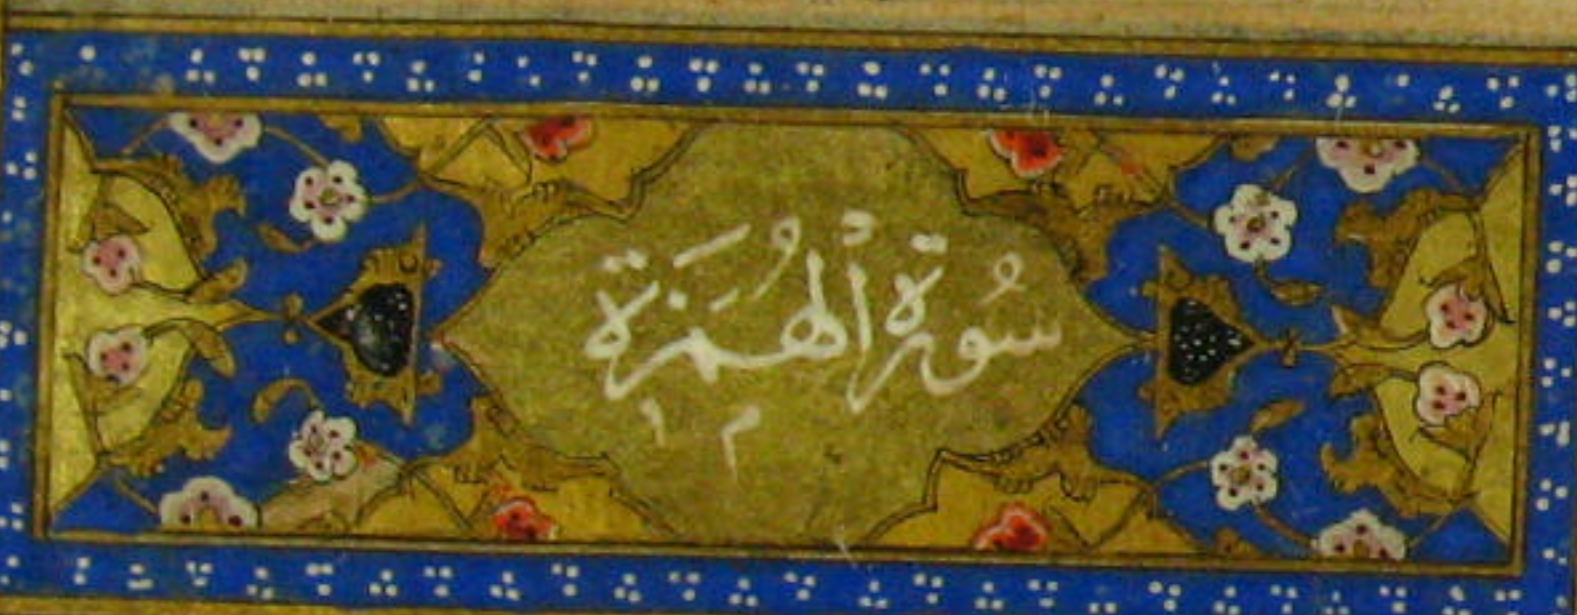 سُورة ألهُمَزة